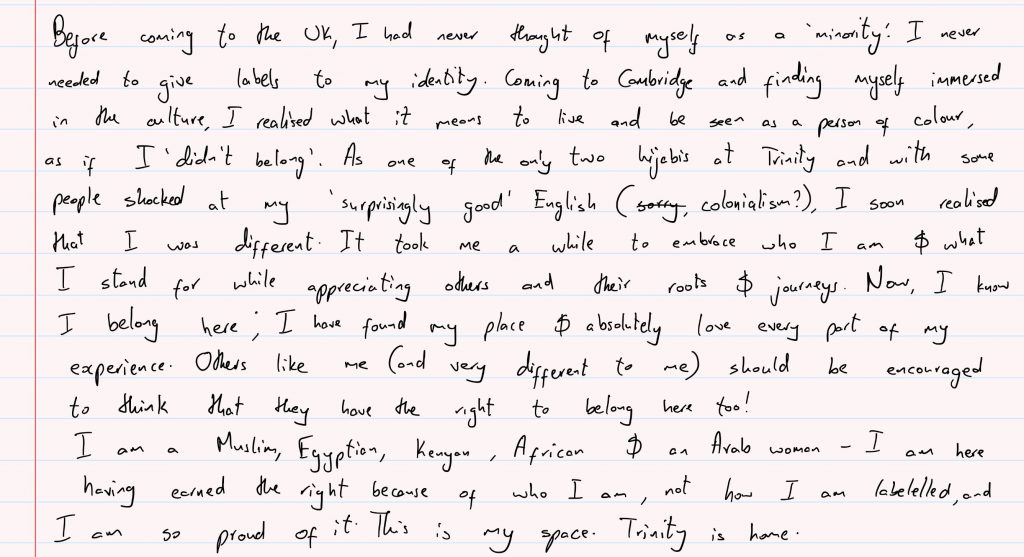 Before coming to the UK, I had never thought of myself as a 'minority'. I never
needed to give labels to my identity. Coming to Cambridge and finding myself immersed
in the culture, I realised what it means to live and be seen as a person of colour,
as if I 'didn't belong'. As one of the only two hijabis at Trinity and with some
people shocked at my 'surprisingly good' English (sorry, colonialism?), I soon realised
that I was different. It took me a while to embrace who I am & what
I stand for while appreciating others and their roots & journeys. Now, I know
I belong here; I have found my place & absolutely love every part of my
experience. Others like me (and very different to me) should be encouraged
to think that they have the right to belong here too!
I am a Muslim, Egyptian, Kenyan, African & an Arab woman - I am here
having earned the right because of who I am, not how I am labelelled, and
I am so proud of it. This is my space. Trinity is home.